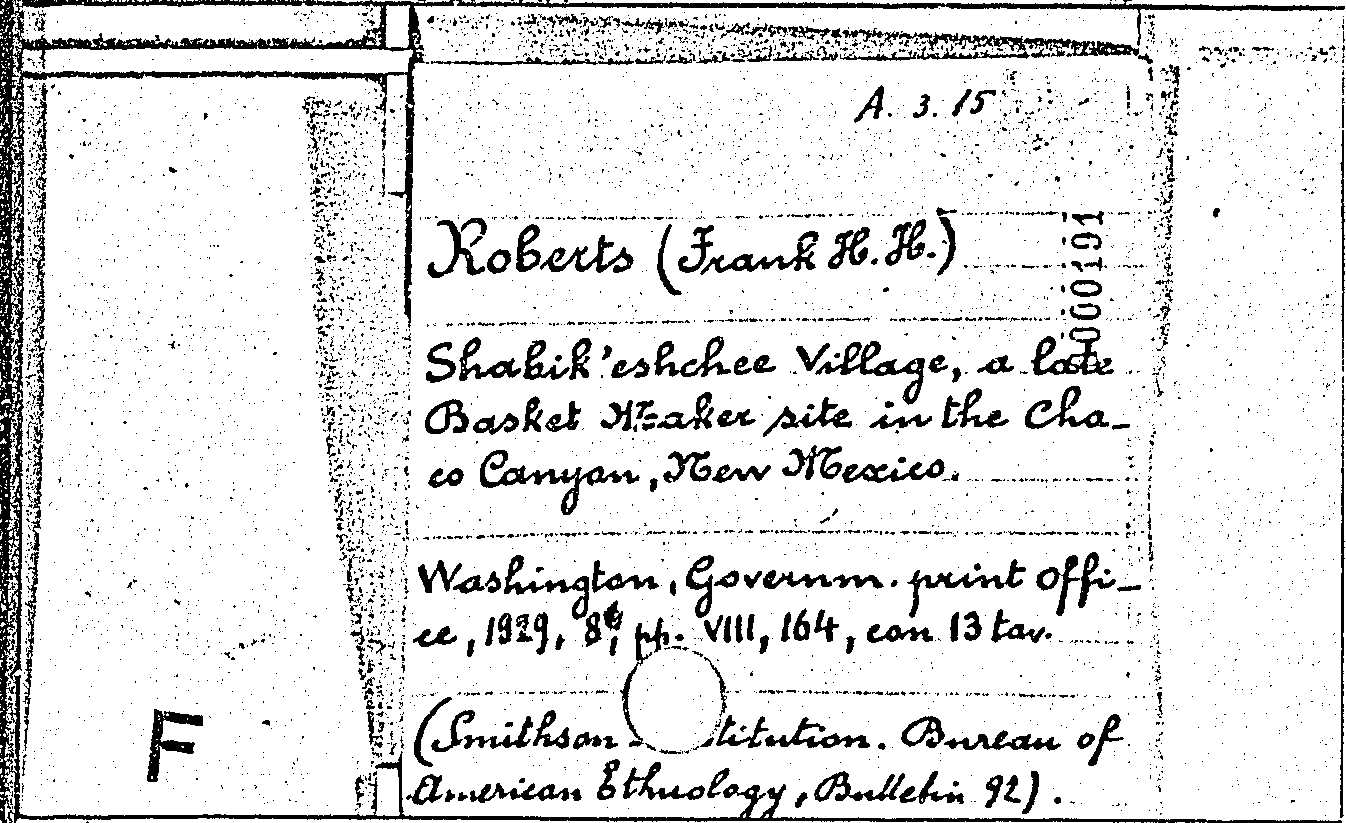 A. 3. 15
Roberts (Frank H. H.)
000191
Shabik'eshchee Village, a late
Basket Maker site in the Cha-
co Canyon, New Mexico.
Washington, Governm. print offi-
ce, 1929, 8°, pp. VIII, 164, con 13 tav.
(Smithson titution. Bureau of
American Ethnology, Bulletin 92).
F